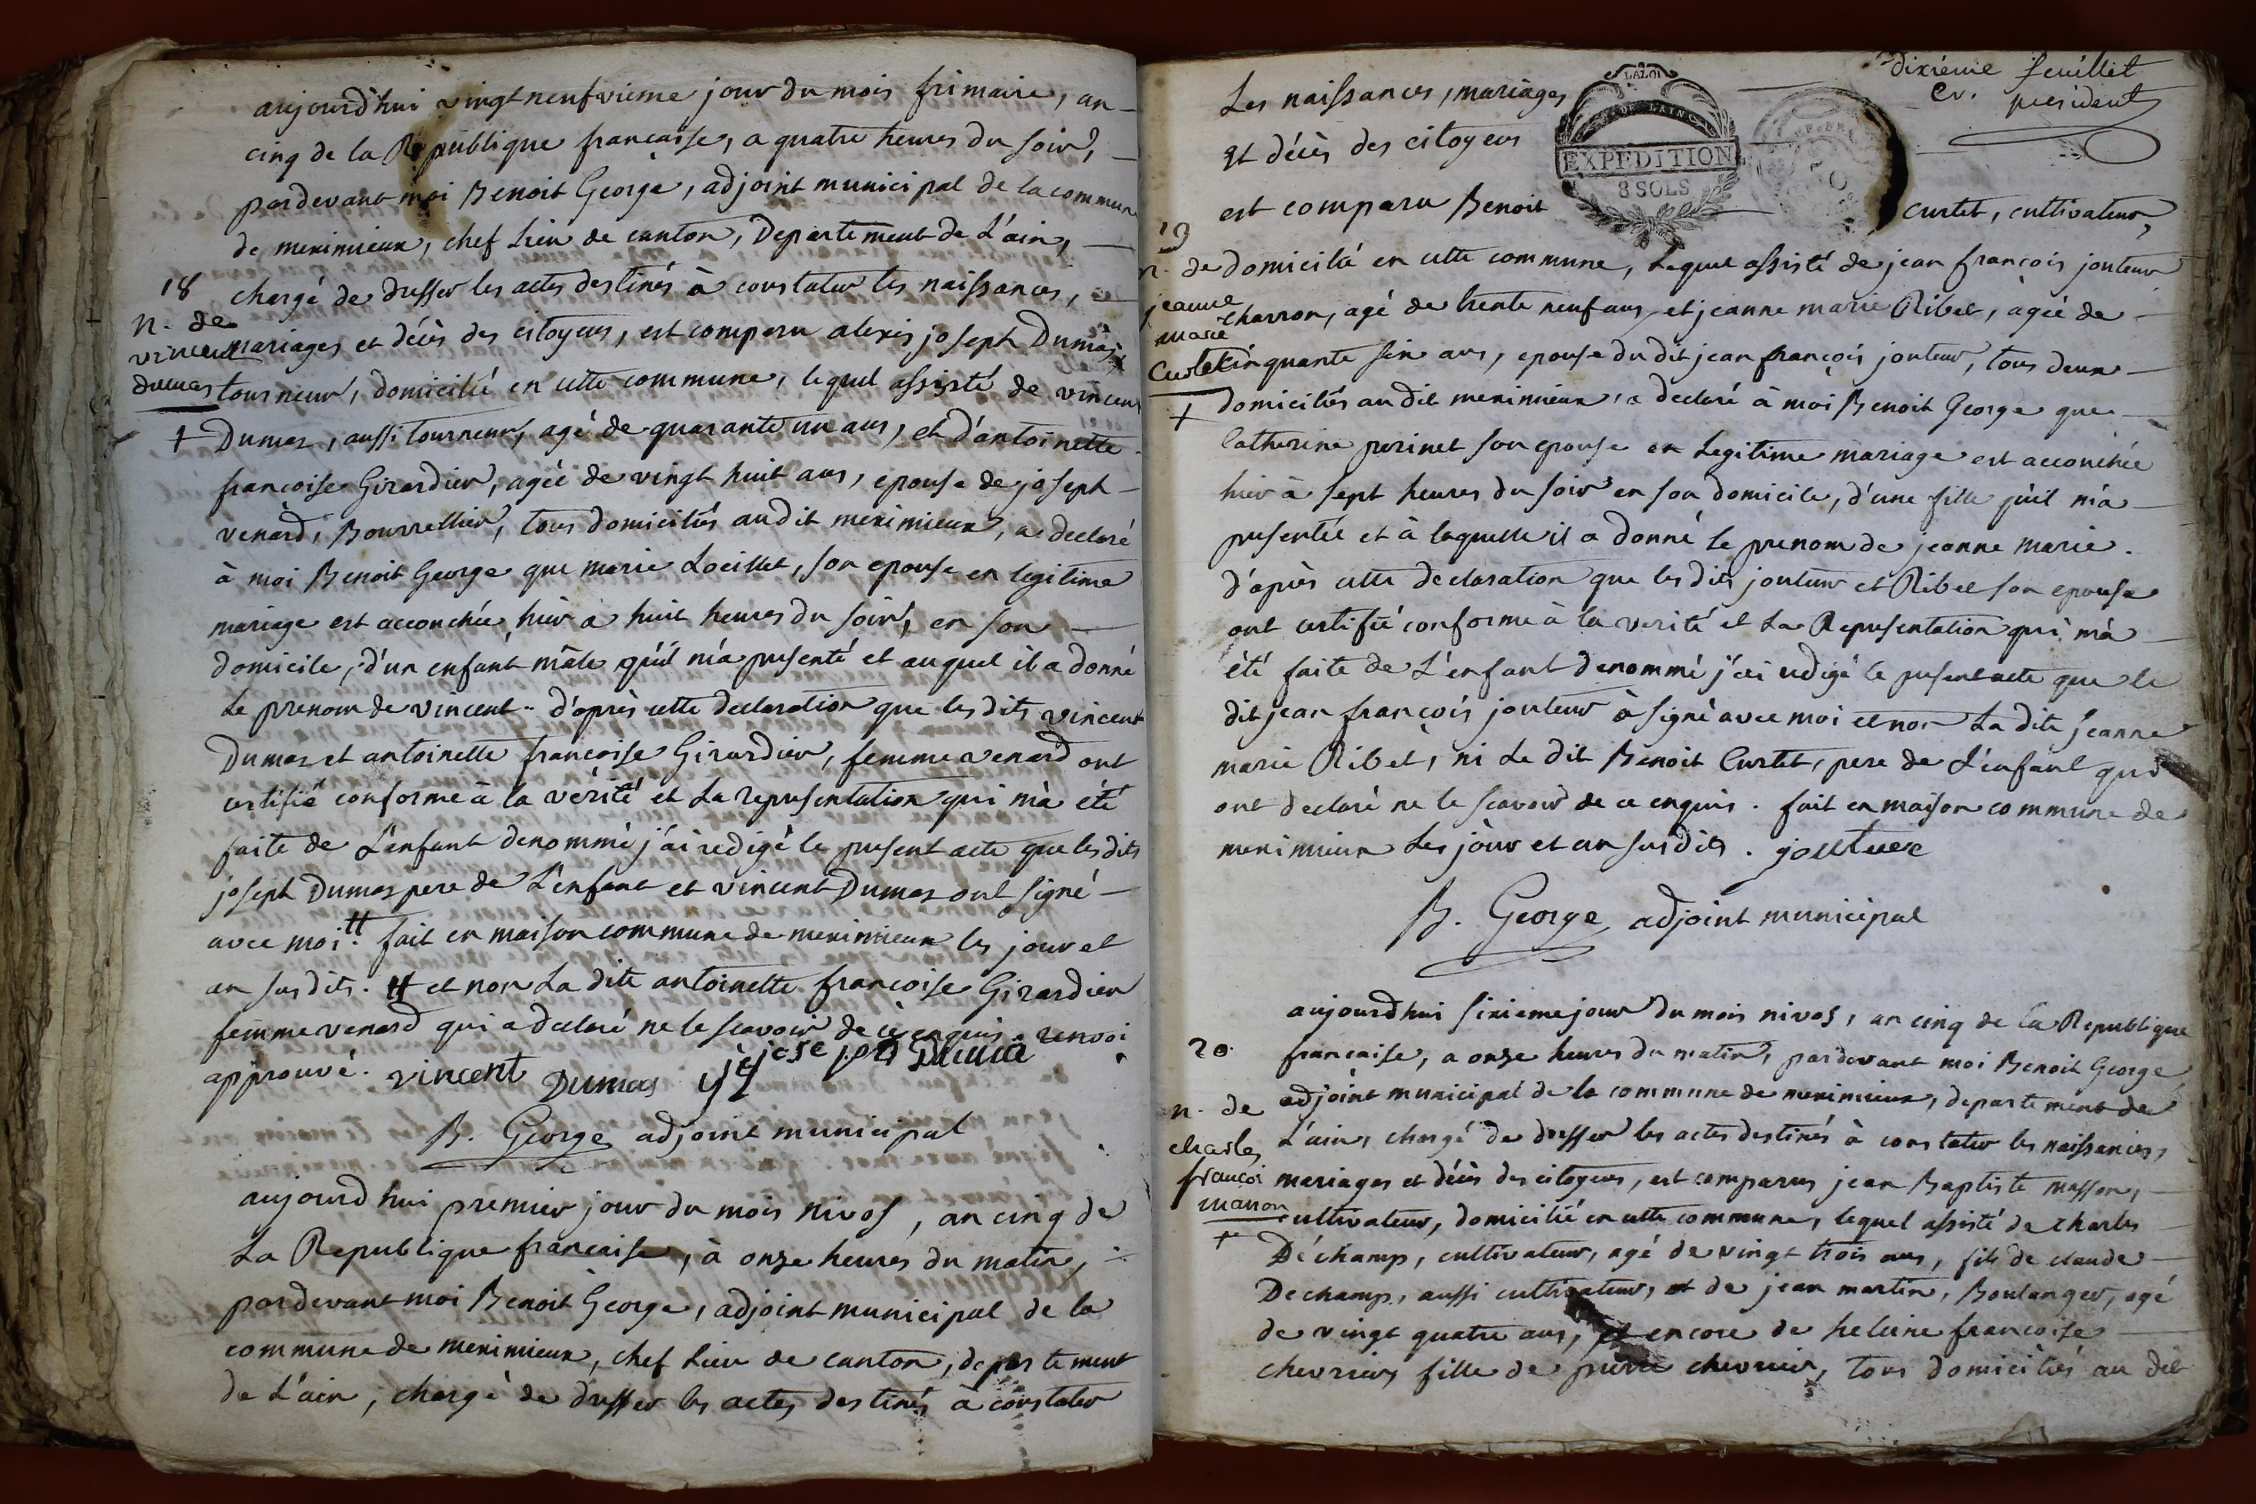 aujourd'hui vingt neufvieme jour du mois frimaire, an
cinq de la Republique francaise, a quatre heures du soir,
pardevant moi Benoit George, adjoint municipal de la commune
de meximieux, chef Lieu de canton, Departement de L'ain,
18
chargé de dresser les actes destinés à constater les naissances,
n. de
vincent
dumas
mariages et décès des citoyens, est comparu alexis joseph Dumas
tourneur, domicilié en cette commune, lequel assisté de vincent
+
Dumas, aussi tourneur, agé de quarante un ans, et d'antoinette
francoise Girardier, agée de vingt huit ans, epouse de joseph
venard, Bourrellier, tous domiciliés audit meximieux, a declaré
à moi Benoit George que marie Loeillet, son epouse en legitime
mariage est accouchée, hier a huit heures du soir, en son
domicile, d'un enfant mâle qu'il m'a presenté et auquel il a donné
Le prenom de vincent. d'après cette declaration que les dits vincent
Dumas et antoinette francoise Girardier, femme venard ont
certifié conforme à la vérité et La representation qui m'a été
faite de L'enfant denommé j'ai redigé le present acte que les dits
joseph Dumas pere de L'enfant et vincent Dumas ont signé
avec moi # fait en maison commune de meximieux les jour et
an susdits. # et non La dite antoinette francoise Girardier
femme venard qui a declaré ne le scavoir de ce enquis. renvoi
approuvé. vincent Dumas joseph Duma
B. George adjoint municipal
aujourd hui premier jour du mois nivos, an cinq de
La Republique francaise, à onze heures du matin,
pardevant moi Benoit George, adjoint municipal de la
commune de meximieux, chef Lieu de canton, departement
de L'ain, chargé de dresser les actes destinés à constater
dixiéme feuillet
president
Les naissances, mariages
et décès des citoyens
LA LOI
DE L'AIN
EXPEDITION
8 SOLS
est comparu Benoit curtet, cultivateur,
19
n. de
jeanne
marie
Curtet
+
domicilié en cette commune, Lequel assisté de jean francois jouteur
charron, agé de trente neuf ans, et jeanne marie Ribet, agée de
cinquante six ans, epouse du dit jean francois jouteur, tous deux
domiciliés audit meximieux, a declaré à moi Benoit George que
Catherine perinet son epouse en Legitime mariage est accouchée
hier à sept heures du soir en son domicile, d'une fille qu'il m'a
presentée et à laquelle il a donné le prenom de jeanne marie.
d'après cette declaration que les dits jouteur et Ribet son epouse
ont certifié conforme à la verité et La Representation qui m'a
été faite de L'enfant denommé j'ai redigé le present acte que le
dit jean francois jouteur à signé avec moi et non La dite jeanne
marie Ribet, ni Le dit Benoit Curtet, pere de L'enfant qui
ont declaré ne le scavoir de ce enquis. fait en maison commune de
meximieux Les jour et an susdits. jouteur
B. George adjoint municipal
aujourdhui sixieme jour du mois nivos, an cinq de la Republique
20
francaise, a onze heures du matin, pardevant moi Benoit George
n. de
charles
françoi
masson
+
adjoint municipal de la commune de meximieux, departement de
L'ain, chargé de dresser les actes destinés à constater les naissances,
mariages et décès des citoyens, est comparus jean Baptiste masson,
cultivateur, domicilié en cette commune, lequel assisté de charles
Déchamp, cultivateur, agé de vingt trois ans, fils de claude
Dechamp, aussi cultivateur, et de jean martin, Boulanger, agé
de vingt quatre ans, et encore de heleine francoise
chevrier, fille de pierre chevrier, tous domiciliés au dit